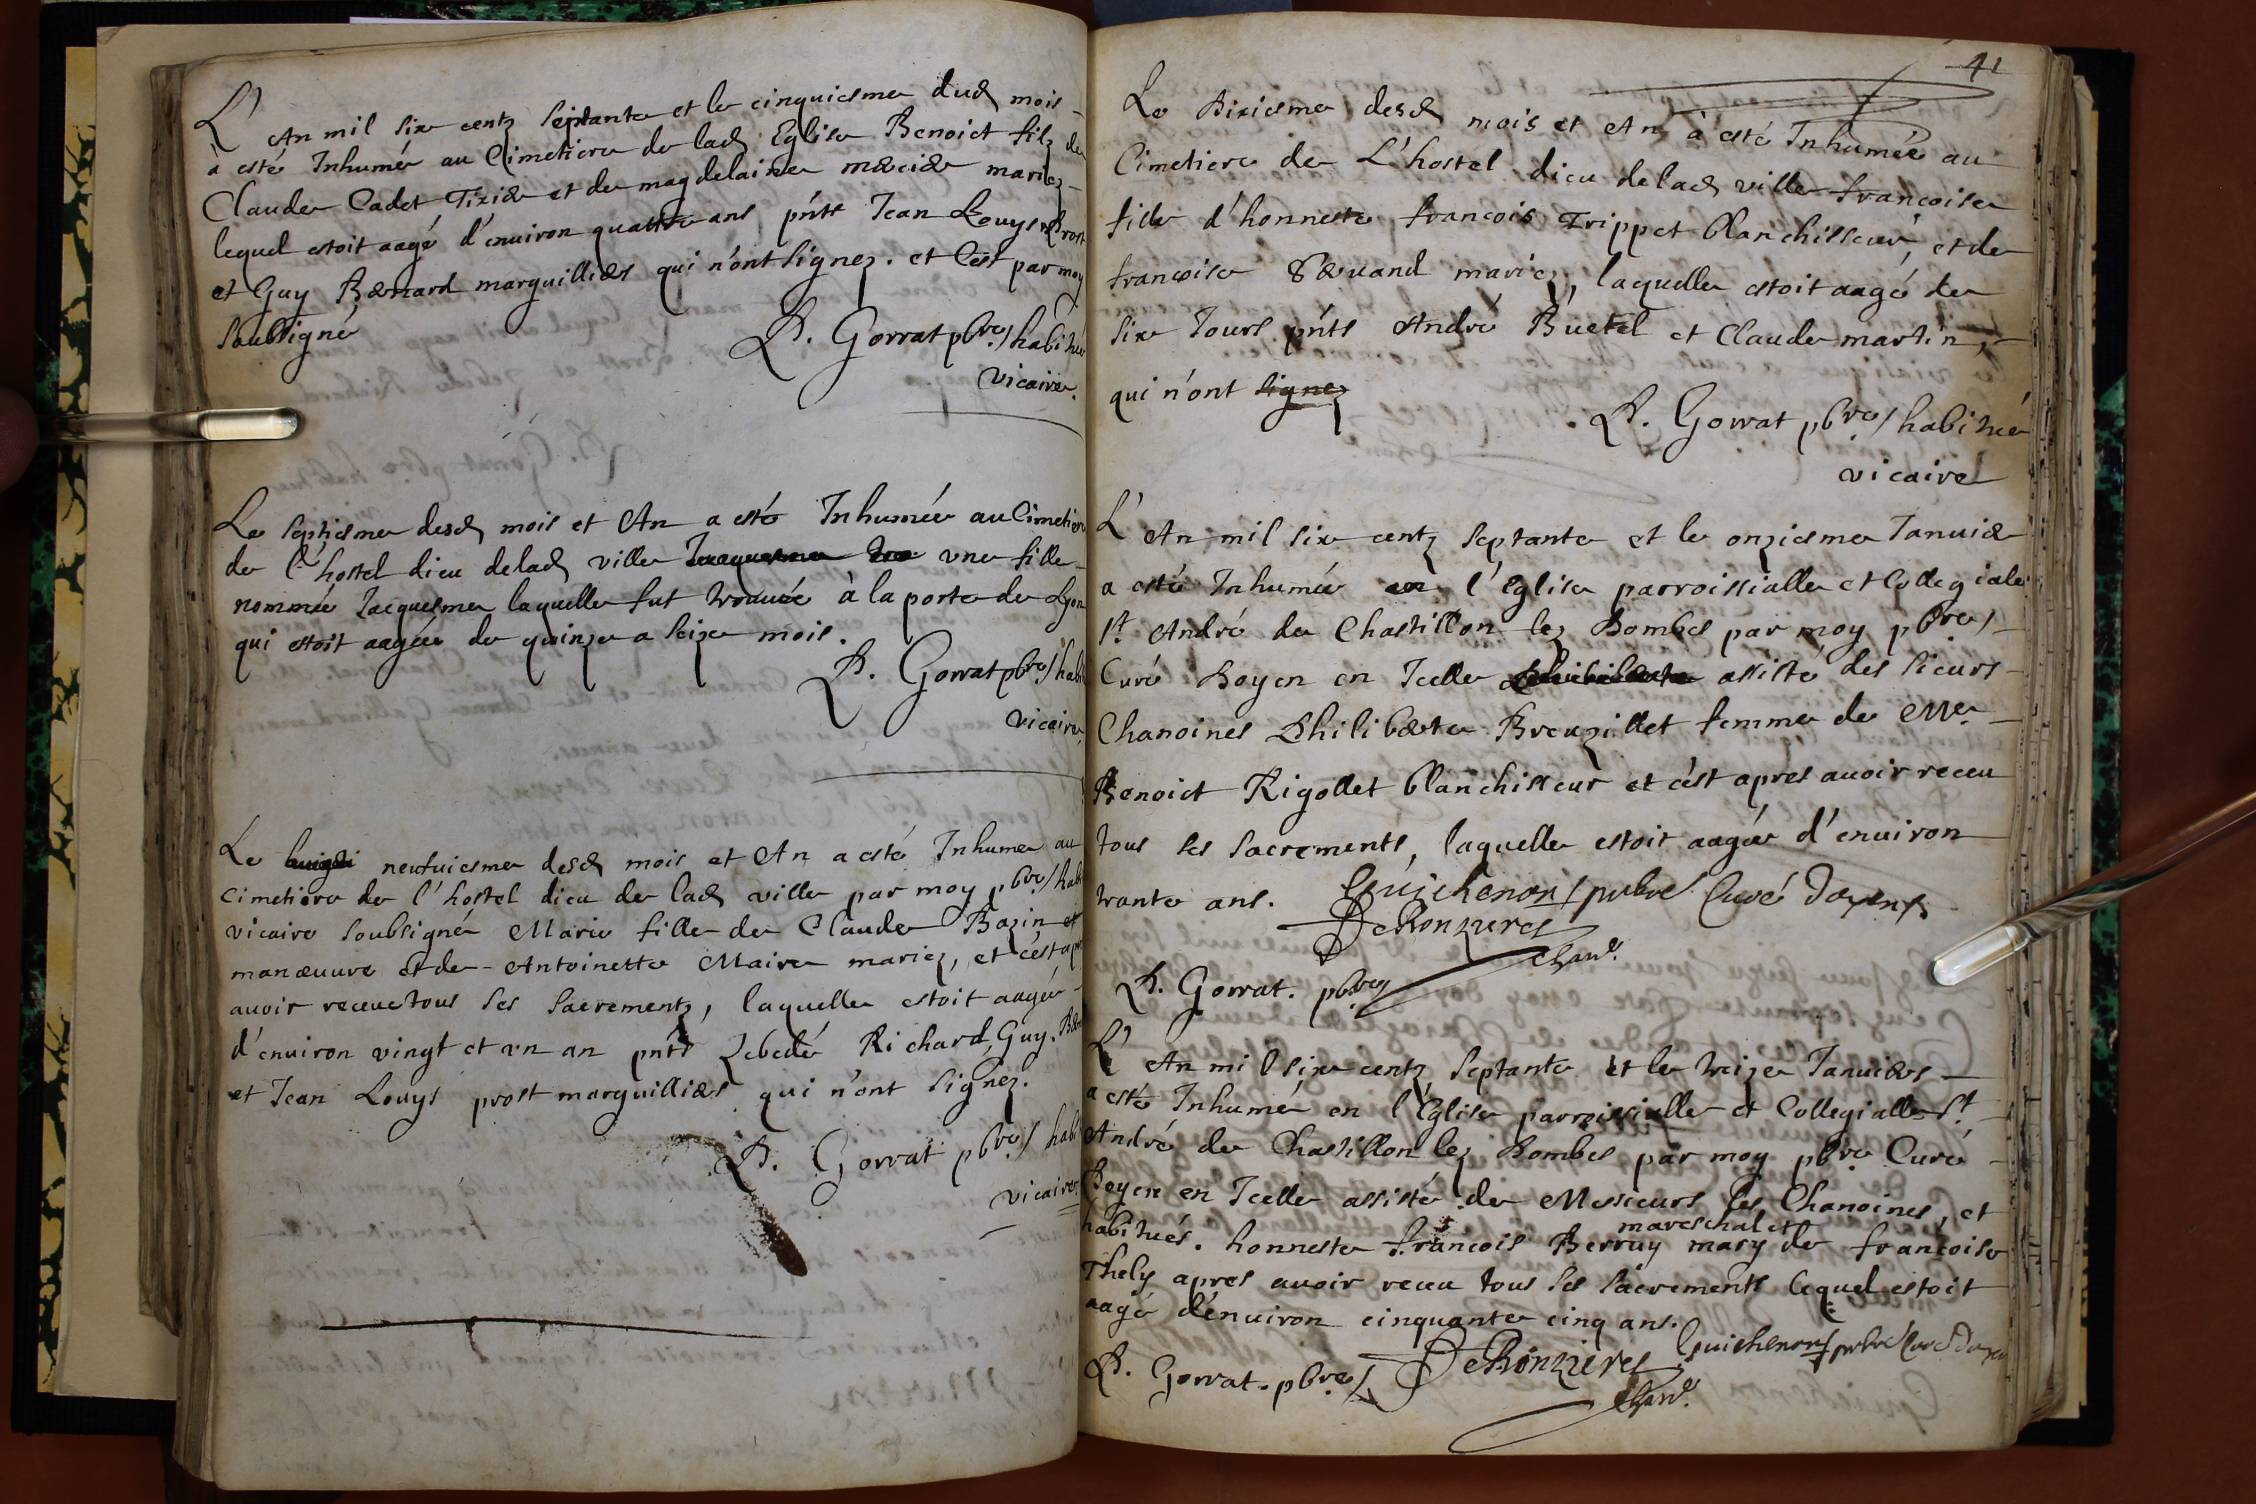 L' An mil six centz septante et le cinquiesme dud mois
à esté Inhumé au Cimetiere de lad Eglise Benoict filz de
Claude Cadet Tixier et de magdelaine mercier mariez
lequel estoit aagé d'enuiron quattre ans pñts Jean Louys Prost
et Guy Bernard marguilliers qui n'ont signez. et C'est par moy
soubsigné
P. Gorrat pbre / habitué
vicaire.
Le septiesme desd mois et An a esté Inhumée au Cimetiere
de l'hostel dieu delad ville vne fille
nommée Jacquesme laquelle fut trouuée à la porte de Lyon
qui estoit aagée de quinze a seize mois.
P. Gorrat pbre / habi
vicaire,
Le neufuiesme desd mois et An a esté Inhume au
cimetiere de l'hostel dieu de lad ville par moy pbre / habi
vicaire soubsigné Marie fille de Claude Bazin
manœuure et de Antoinette Maire mariez, et c'est apr
auoir receue tous ses sacrementz, laquelle estoit aagée
d'enuiron vingt et vn an pnts Zebedé Richard, Guy Bern
et Jean Louys prost marguilliers qui n'ont signez.
P. Gorrat pbre / habi
vicaire
41
Le Dixiesme desd mois et An à esté Inhumée au
Cimetiere de L'hostel dieu delad ville francoise
fille d'honneste francois Trippet blanchisseur, et de
francoise Deruand mariez, laquelle estoit aagé de
six Jours pñts André Buetel et Claude martin,
qui n'ont signez
P. Gorrat pbre / habitué
vicaire
L' An mil six centz septante et le onziesme Januier
a esté Inhumée en l'Eglise parroissialle et Collegiale
st. André de Chastillon lez Dombes par moy pbre /
Curé Doyen en Icelle assisté des sieurs
Chanoines Philiberte Breuzillet femme de Me.
Benoict Rigollet blanchisseur et c'est apres auoir receu
tous ses sacrements, laquelle estoit aagée d'enuiron
trante ans. Guichenon / prbre Curé doyen
DeRonzieres
chane.
P. Gorrat. pbre
L' An mil six centz septante et le treize Januier
a esté Inhumé en l'Eglise parroissialle et Collegialle st.
André de Chastillon lez Dombes par moy pbre Curé
Doyen en Icelle assisté de Messieurs les Chanoines, et
habitués. honneste francois Berruy mareschal et mary de francoise
Thely apres auoir receu tous ses sacrements lequel estoit
aagé d'enuiron cinquante cinq ans. Guichenon / prbre Curé doyen
P. Gorrat. pbre / DeRonzieres
chane.